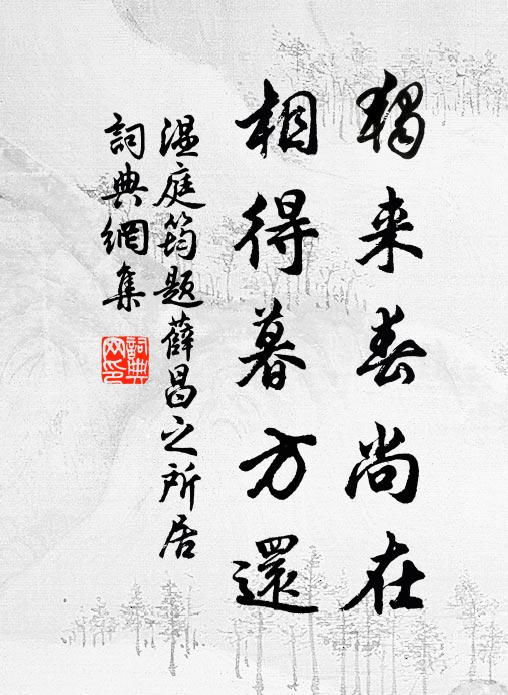 獨来春尚在
相得暮方還
温庭筠题薛昌之所居
詞典網集
詞典網印